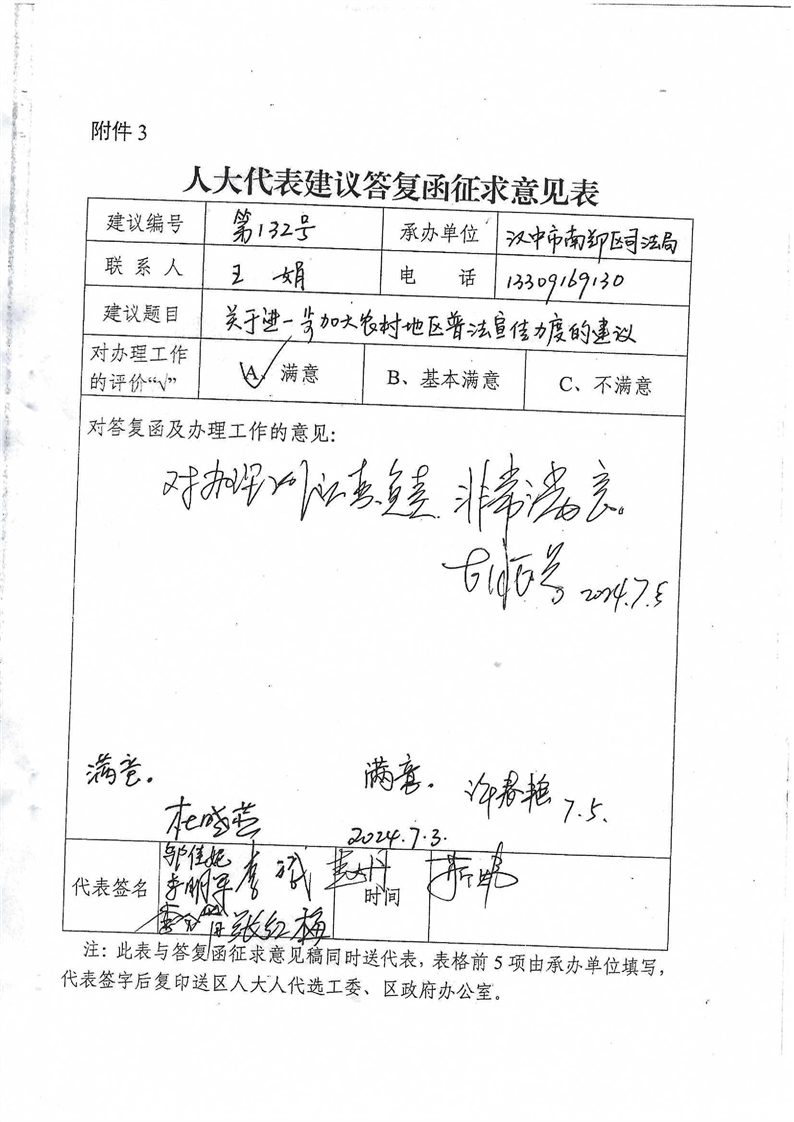 附件3
人大代表建议答复函征求意见表
建议编号 第132号 承办单位 汉中市南郑区司法局
联系人 王娟 电话 13309169130
建议题目 关于进一步加大农村地区普法宣传力度的建议
对办理工作的评价“√” A、满意 B、基本满意 C、不满意
对答复函及办理工作的意见:
对办理 非常满意。
2024.7.5
满意。 满意。 许春艳 7.5.
杜晓芸 2024.7.3.
邹佳妮
代表签名 李明军 李斌 时间
张红梅
注：此表与答复函征求意见稿同时送代表，表格前5项由承办单位填写，
代表签字后复印送区人大人代选工委、区政府办公室。